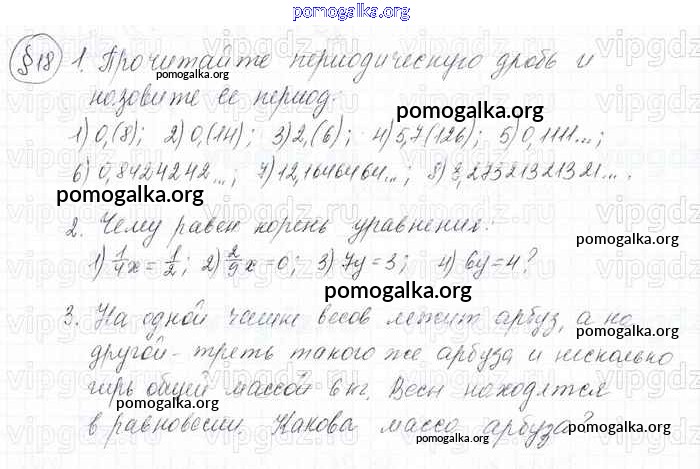 pomogalka.org
§18 1. Прочитайте периодическую дробь и
назовите ее период:
1) 0,(8); 2) 0,(14); 3) 2,(6); 4) 5,7(126); 5) 0,1111...;
6) 0,8424242...; 7) 12,1646464...; 8) 3,27521321321... .
2. Чему равен корень уравнения:
1) 1/4 x = 1/2; 2) 2/9 x = 0; 3) 7y = 3; 4) 6y = 4?
3. На одной чашке весов лежит арбуз, а на
другой - треть такого же арбуза и несколько
гирь общей массой 6 кг. Весы находятся
в равновесии. Какова масса арбуза?
pomogalka.org
pomogalka.org
pomogalka.org
pomogalka.org
pomogalka.org
pomogalka.org
pomogalka.org
pomogalka.org
pomogalka.org
pomogalka.org